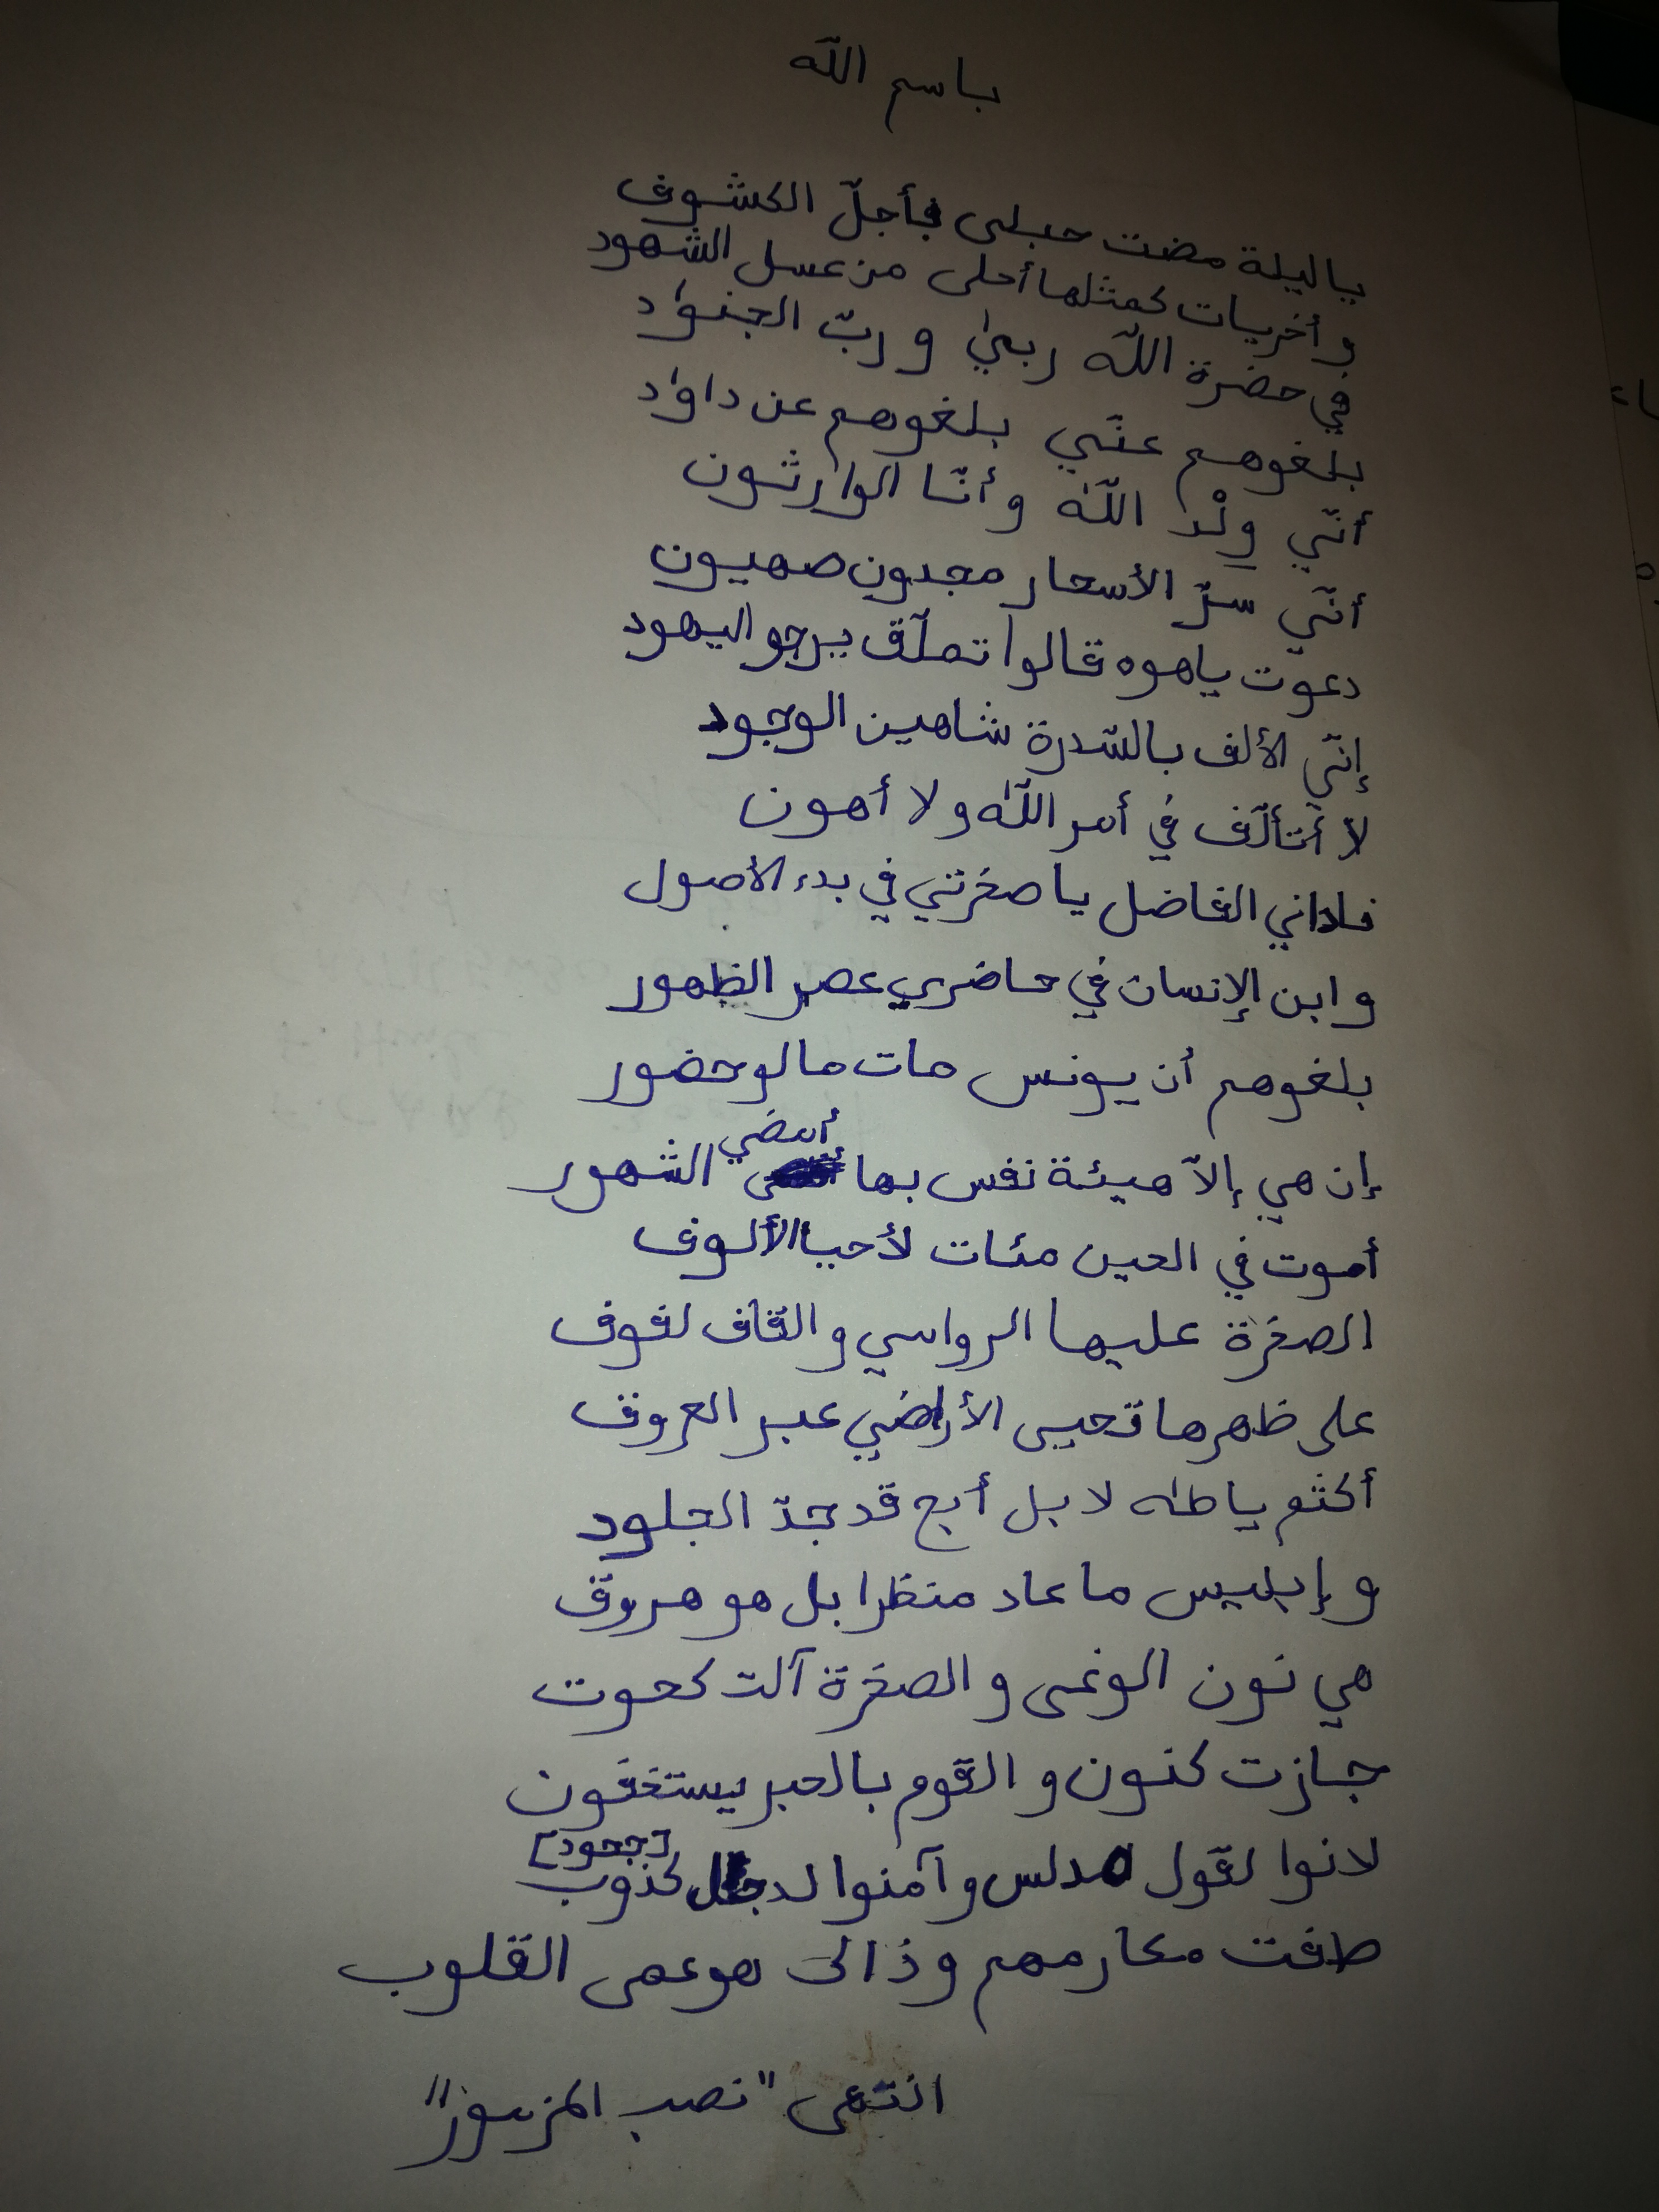 باسم الله
يا ليلة مضت حبلى بأجلّ الكشوف
وأخريات كمثلها أحلى من عسل الشهود
في حضرة اللّه ربي وربّ الجنود
بلغوهم عنّي بلغوهم عن داود
أنّي ولْد اللّه وأنّا الوارثون
أنّي سرّ الأسحار مجدون صهيون
دعوت ياهوه قالوا تملّق يرجو اليهود
إنّي الألف بالسّدرة شاهين الوجود
لا أتألّف في أمر اللّه ولا أهون
الفاضل يا صخرتي في بدء الأصول
وابن الإنسان في حاضري عصر الظهور
بلغوهم أن يونس مات مالو حضور
إن هي إلاّ هيئة نفس بها أمضي الشهور
أموت في الحين مئات لأحيا الألوف
الصخرة عليها الرواسي والقاف لفوف
على ظهرها تحيى الأراضي عبر العروق
أكثم يا طه لا بل أبح قد جدّ الجلود
وإبليس ما عاد منظرا بل هو هروق
هي نون الوغى والصخرة آلت كحوت
جازت كنون والقوم بالحبر يستخفون
لانوا لقول مدلس وآمنوا لدجال كذوب [جحود]
طفت محارمهم وذالك هو عمى القلوب
انتهى "نصب المزبور"